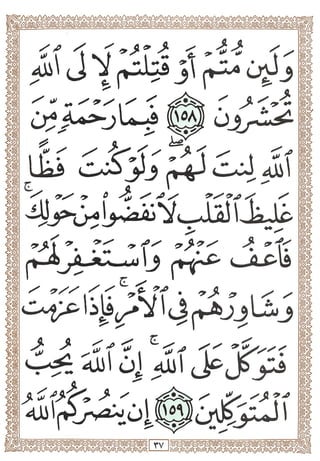 وَلَئِن مُّتُّمْ أَوْ قُتِلْتُمْ لَإِلَى ٱللَّهِ
تُحْشَرُونَ ١٥٨ فَبِمَا رَحْمَةٍ مِّنَ
ٱللَّهِ لِنتَ لَهُمْ ۖ وَلَوْ كُنتَ فَظًّا
غَلِيظَ ٱلْقَلْبِ لَٱنفَضُّوا۟ مِنْ حَوْلِكَ ۖ
فَٱعْفُ عَنْهُمْ وَٱسْتَغْفِرْ لَهُمْ
وَشَاوِرْهُمْ فِى ٱلْأَمْرِ ۖ فَإِذَا عَزَمْتَ
فَتَوَكَّلْ عَلَى ٱللَّهِ ۚ إِنَّ ٱللَّهَ يُحِبُّ
ٱلْمُتَوَكِّلِينَ ١٥٩ إِن يَنصُرْكُمُ ٱللَّهُ
٣٧